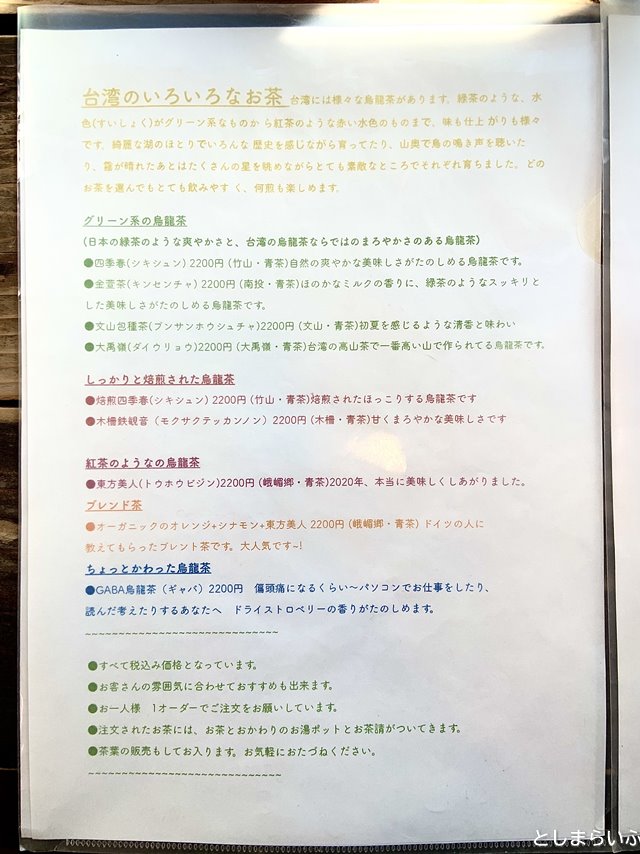 台湾のいろいろなお茶 台湾には様々な烏龍茶があります。緑茶のような、水
色(すいしょく)がグリーン系なものか ら紅茶のような赤い水色のものまで、味も仕上 がりも様々
です。綺麗な湖のほとりでいろんな 歴史を感じながら育ってたり、山奥で鳥の鳴き声を聴いた
り、霧が晴れたあとはたくさんの星を眺めながらとても素敵なところでそれぞれ育ちました。どの
お茶を選んでもとても飲みやす く、何煎も楽しめます。
グリーン系の烏龍茶
(日本の緑茶のような爽やかさと、台湾の烏龍茶ならではのまろやかさのある烏龍茶)
●四季春(シキシュン) 2200円 (竹山・青茶)自然の爽やかな美味しさがたのしめる烏龍茶です。
●金萱茶(キンセンチャ) 2200円 (南投・青茶)ほのかなミルクの香りに、緑茶のようなスッキリと
した美味しさがたのしめる烏龍茶です。
●文山包種茶(ブンサンホウシュチャ)2200円 (文山・青茶)初夏を感じるような清香と味わい
●大禹嶺(ダイウリョウ)2200円 (大禹嶺・青茶)台湾の高山茶で一番高い山で作られてる烏龍茶です。
しっかりと焙煎された烏龍茶
●焙煎四季春(シキシュン) 2200円 (竹山・青茶)焙煎されたほっこりする烏龍茶です
●木柵鉄観音（モクサクテッカンノン）2200円 (木柵・青茶)甘くまろやかな美味しさです
紅茶のようなの烏龍茶
●東方美人(トウホウビジン)2200円 (峨嵋郷・青茶)2020年、本当に美味しくしあがりました。
ブレンド茶
●オーガニックのオレンジ+シナモン+東方美人 2200円 (峨嵋郷・青茶) ドイツの人に
教えてもらったブレント茶です。大人気です~!
ちょっとかわった烏龍茶
●GABA烏龍茶（ギャバ）2200円　偏頭痛になるくらい~パソコンでお仕事をしたり、
読んだ考えたりするあなたへ　ドライストロベリーの香りがたのしめます。
~~~~~~~~~~~~~~~~~~~~~~~~~~~~~
●すべて税込み価格となっています。
●お客さんの雰囲気に合わせておすすめも出来ます。
●お一人様　1オーダーでご注文をお願いしています。
●注文されたお茶には、お茶とおかわりのお湯ポットとお茶請がついてきます。
●茶葉の販売もしてお入ります。お気軽におたづねください。
~~~~~~~~~~~~~~~~~~~~~~~~~~~~~
としまらいふ